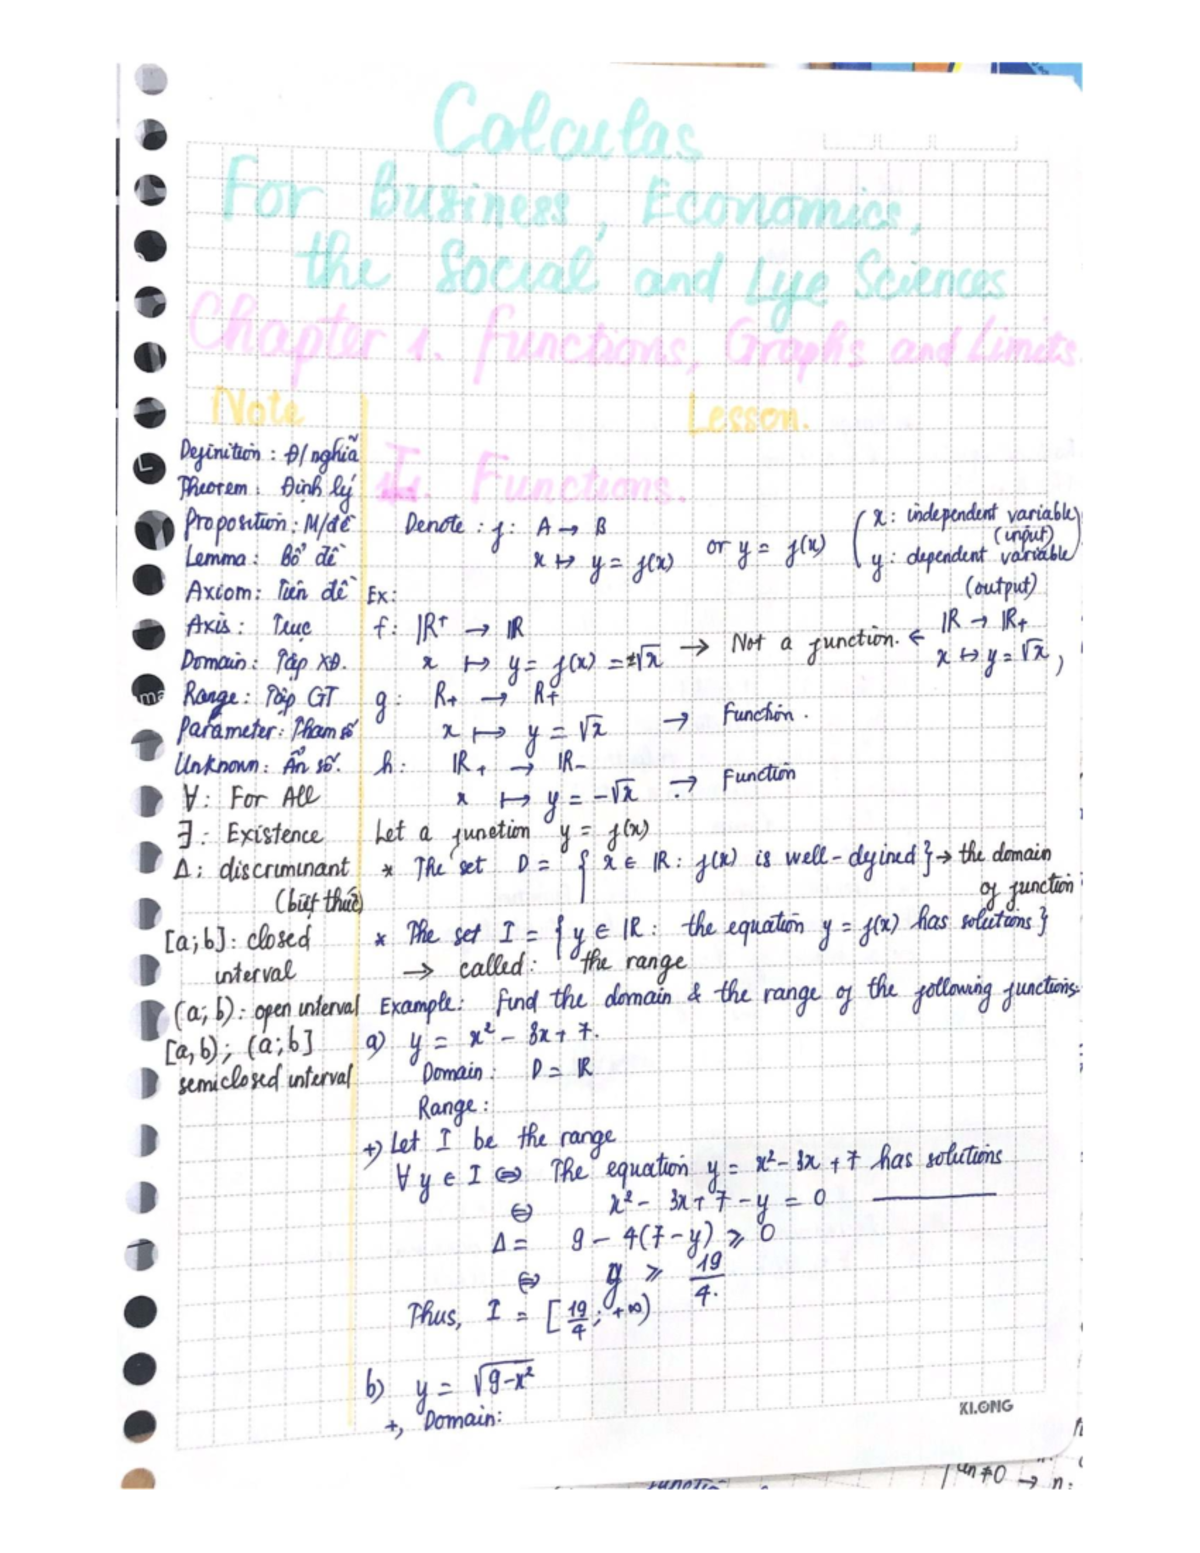 Calculas
For Business, Economics,
the Social and Lye Sciences
Chapter 1. Functions, Graphs and Limits
Note
Definition : Đ/nghĩa
Theorem : Định lý
Proposition : M/đề
Lemma : Bổ đề
Axiom : Tiên đề
Axis : Trục
Domain : Tập XĐ.
Range : Tập GT
Parameter : Tham số
Unknown : Ẩn số.
∀ : For All
∃ : Existence
Δ : discriminant
(biệt thức)
[a;b] : closed
interval
(a; b) : open interval
[a,b) ; (a;b]
semiclosed interval
Lesson.
I. Functions.
Denote : f : A → B
x ↦ y = f(x) or y = f(x)
x : independent variable
(input)
y : dependent variable
(output)
Ex :
f : ℝ⁺ → ℝ
x ↦ y = f(x) = ±√x → Not a function. ← ℝ → ℝ₊
x ↦ y = √x ,
g : R₊ → R₊
x ↦ y = √x → Function .
h : ℝ₊ → ℝ₋
x ↦ y = -√x → Function
Let a function y = f(x)
* The set D = { x ∈ ℝ : f(x) is well-defined } → the domain
of function
* The set I = { y ∈ ℝ : the equation y = f(x) has solutions }
→ called : the range
Example : Find the domain & the range of the following functions.
a) y = x² - 3x + 7.
Domain : D = ℝ
Range :
+) Let I be the range
∀ y ∈ I ⇔ The equation y = x² - 3x + 7 has solutions
⇔ x² - 3x + 7 - y = 0 ———
Δ = 9 - 4(7 - y) ⩾ 0
⇔ y ⩾ 19/4.
Thus, I = [19/4 ; +∞)
b) y = √9-x²
+, Domain :
KLONG